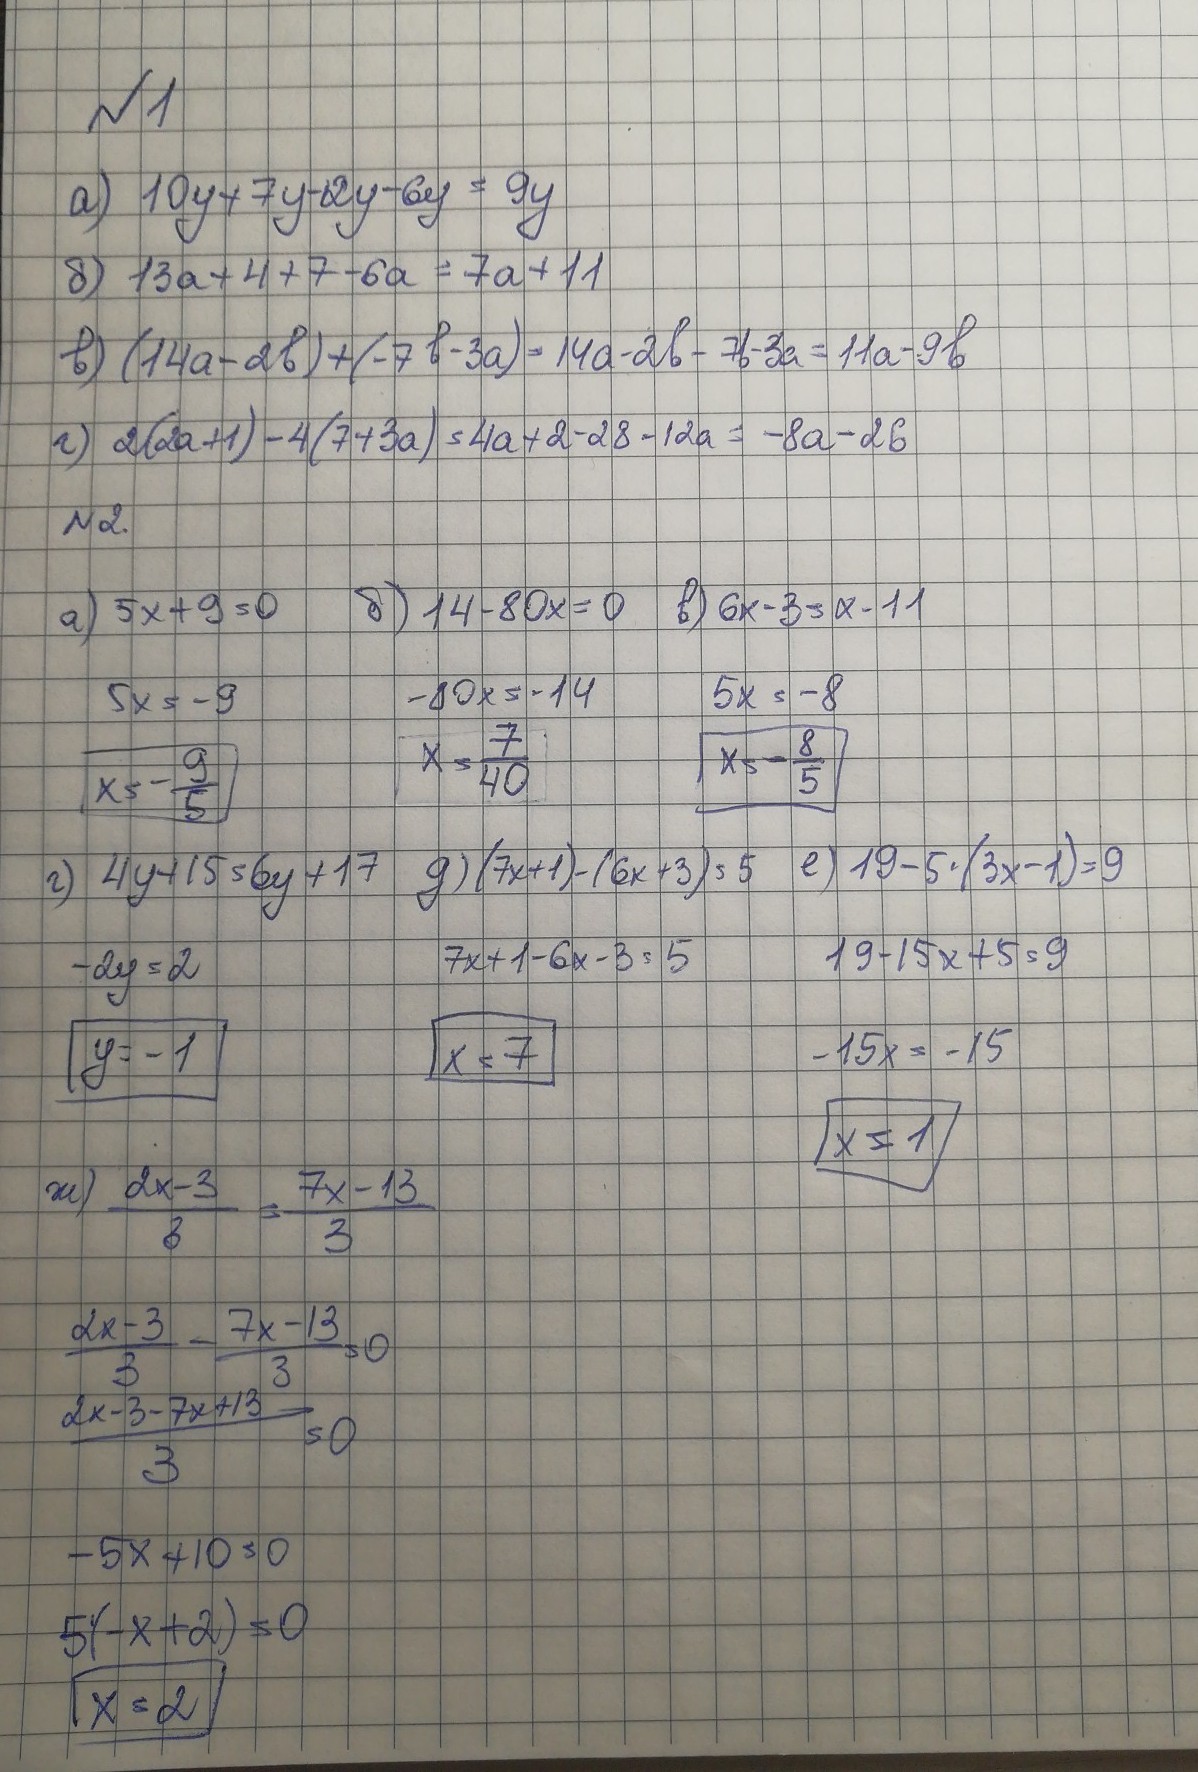 №1
а) 10y+7y-2y-6y = 9y
б) 13a+4+7-6a = 7a+11
в) (14a-2b)+(-7b-3a)=14a-2b-7b-3a=11a-9b
г) 2(2a+1)-4(7+3a)=4a+2-28-12a= -8a-26
№2.
а) 5x+9=0 б) 14-80x=0 в) 6x-3=x-11
5x=-9 -80x=-14 5x=-8
x=-9/5 x=7/40 x=-8/5
г) 4y+15=6y+17 д) (7x+1)-(6x+3)=5 е) 19-5·(3x-1)=9
-2y=2 7x+1-6x-3=5 19-15x+5=9
y=-1 x=7 -15x=-15
x=1
ж) (2x-3)/3 = (7x-13)/3
(2x-3)/3 - (7x-13)/3 =0
(2x-3-7x+13)/3 =0
-5x+10=0
5(-x+2)=0
x=2